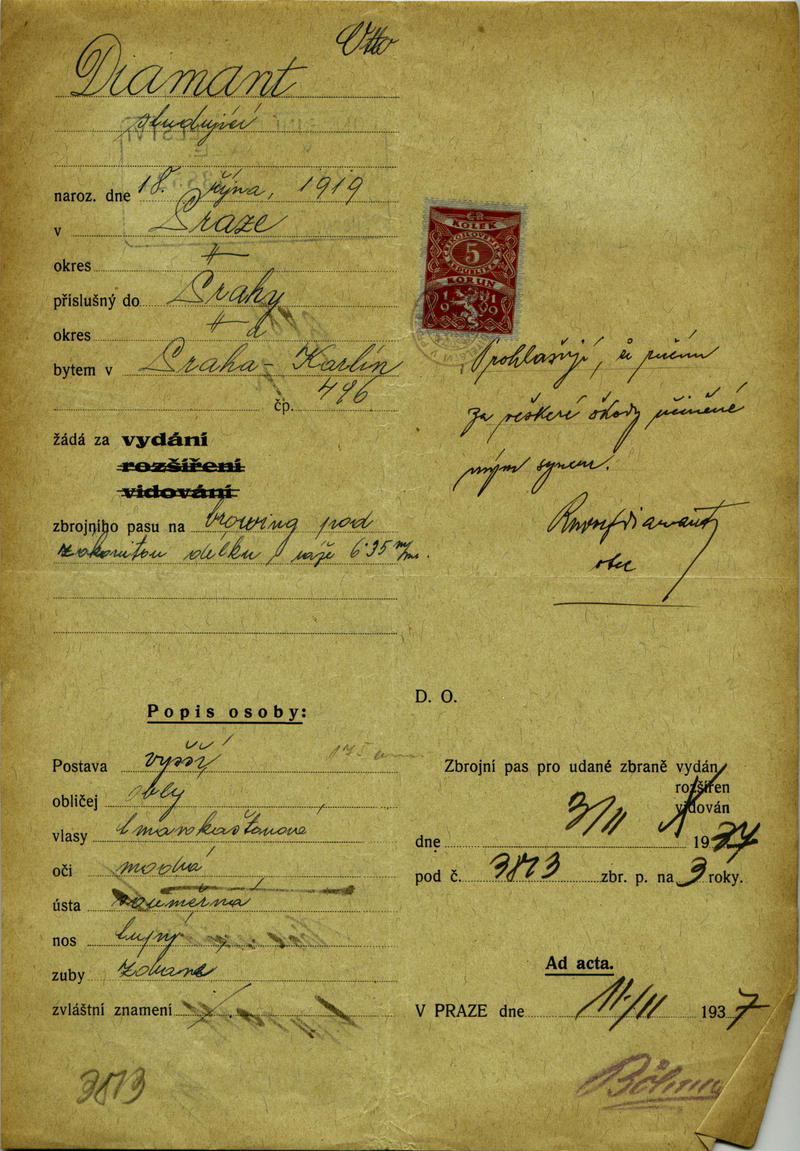 Otto
Diamant
studující
naroz. dne 18. října, 1919
v Praze
okres "
příslušný do Prahy
okres "
bytem v Praha - Karlín
čp. 496
žádá za vydání
rozšíření
vidování
zbrojního pasu na browing pod
zákonitou délku, ráže 6·35 m/m.
KOLEK
5
KORUN
1919
Prohlašuji, že ručím
za veškeré škody učiněné
mým synem.
Diamant
otec
Popis osoby:
Postava vyšší 175 cm
obličej oblý
vlasy tmavokaštanové
oči modrá
ústa souměrná
nos
zuby zdravé
zvláštní znamení
3813
D. O.
Zbrojní pas pro udané zbraně vydán
rozšířen
vidován
dne 3/11 1937
pod č. 3813 zbr. p. na 3 roky.
Ad acta.
V PRAZE dne 11/11 1937
Böhm